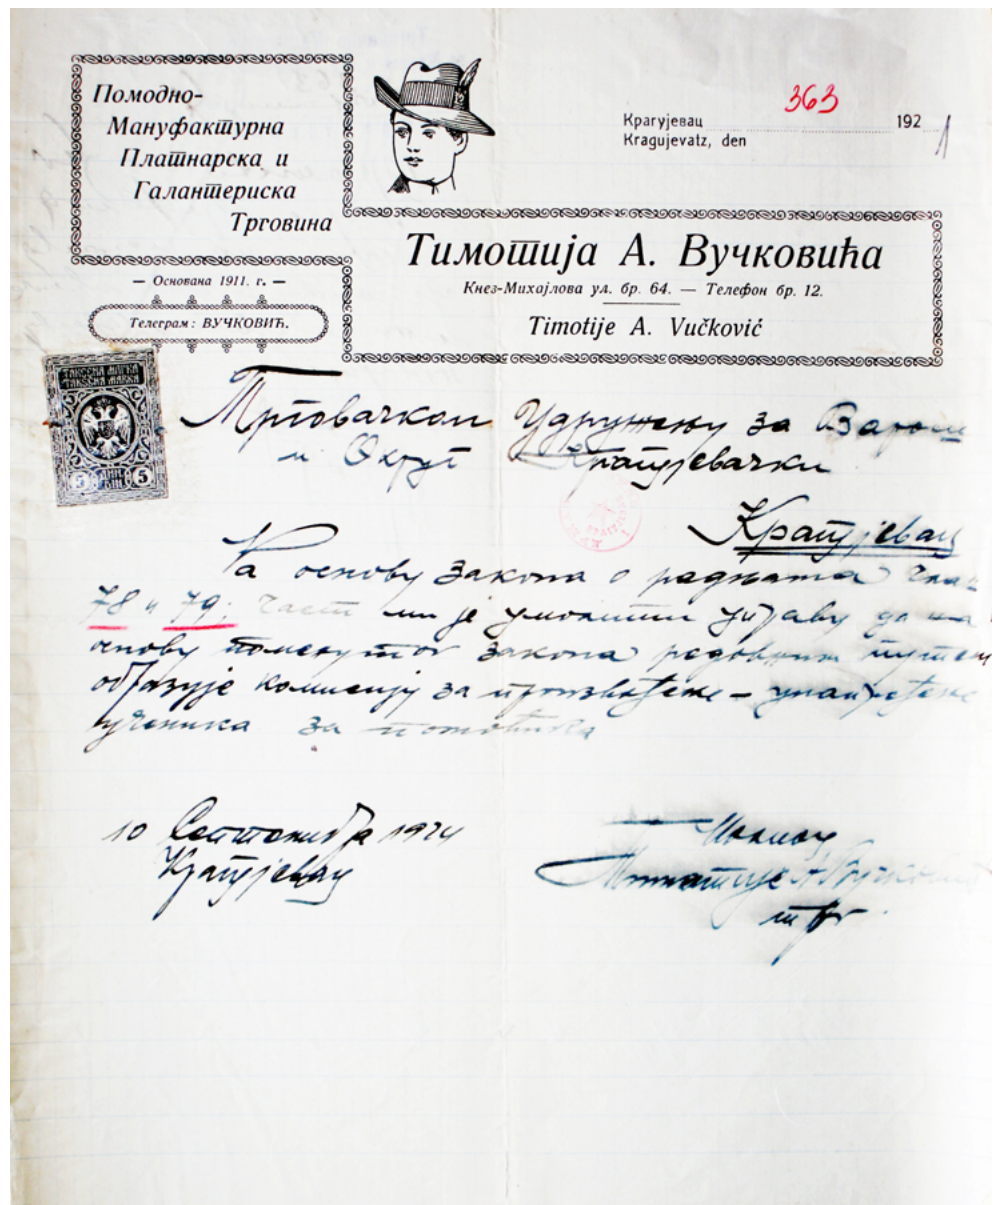 Помодно-
Мануфактурна
Платнарска и
Галантериска
Трговина
— Основана 1911. г. —
Телеграм: ВУЧКОВИЋ.
363
Крагујевац 192 1
Kragujevatz, den
Тимотија А. Вучковића
Кнез-Михајлова ул. бр. 64. — Телефон бр. 12.
Timotije A. Vučković
ТАКСЕНА МАРКА
ТАКСЕНА МАРКА
5 5
Трговачком Удружењу за Варош
и Округ Крагујевачки
Крагујевац
На основу закона о радњама члан
78 и 79. част ми је умолити управу да на
основу поменутог закона редовним путем
образује комисију за произвођење – унапређење
ученика за помоћника
10 Септембра 1921
Крагујевац
Тимотије А Вучковић
трг